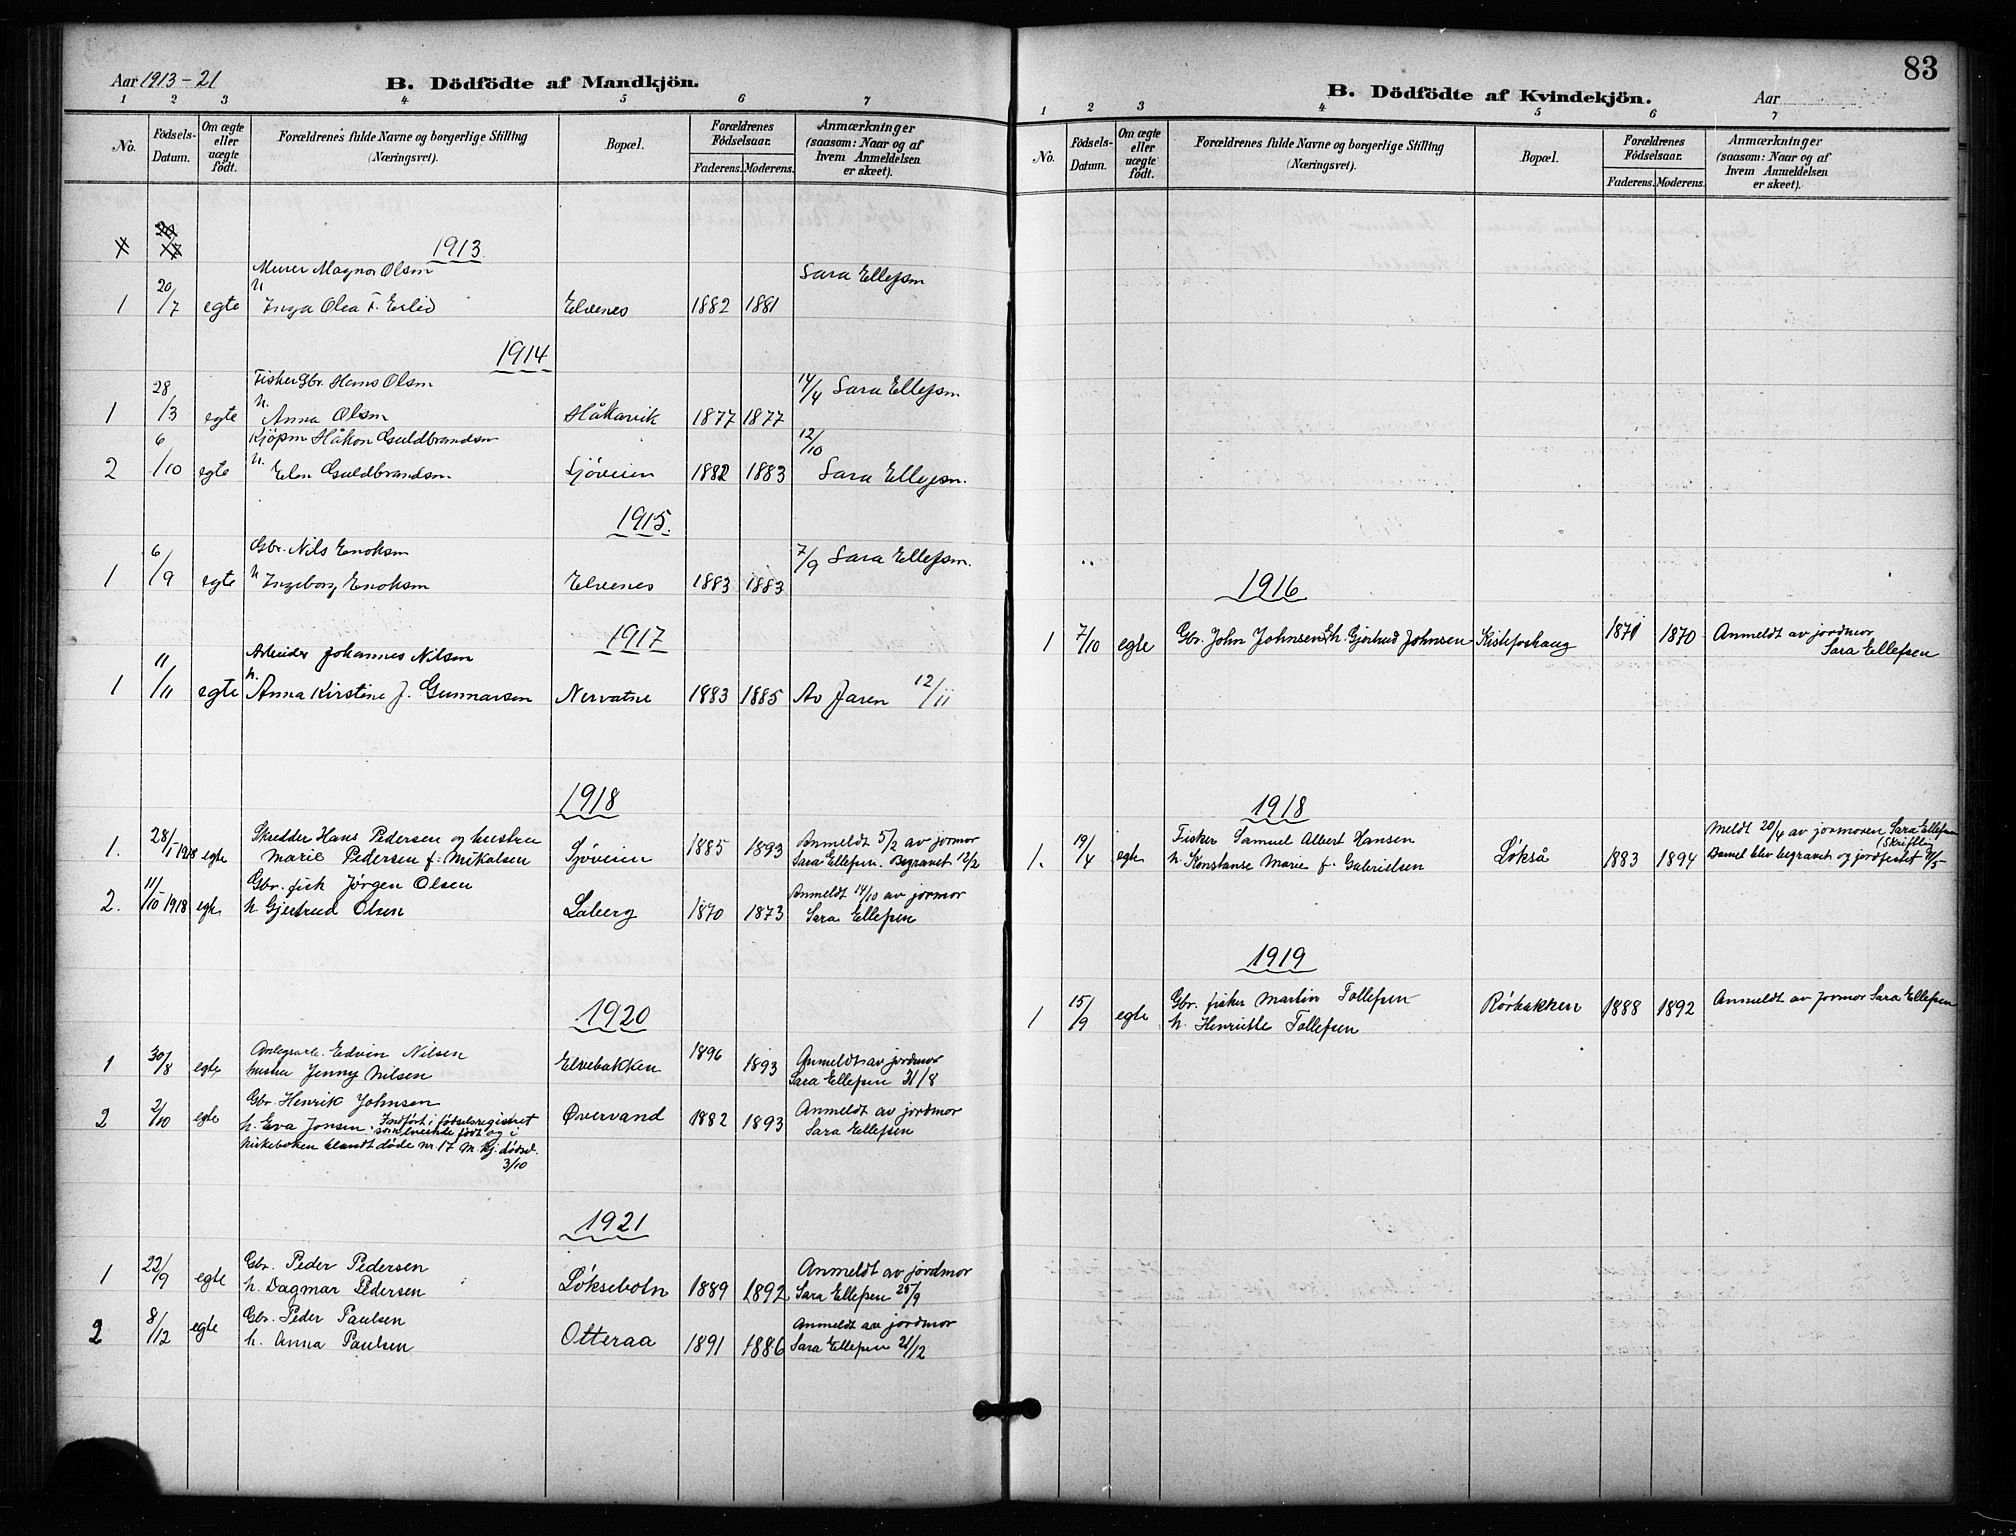 Aar 1913-21
B. Dödfödte af Mandkjön.
1 2 3 4 5 6 7
No. Födsels-Datum. Om ægte eller uægte födt. Forældrenes fulde Navne og borgerlige Stilling (Næringsvei). Bopæl. Forældrenes Födselsaar. Faderens. Moderens. Anmærkninger (saasom: Naar og af hvem Anmeldelsen er skeet).
1913
Murer Magnor Olsen Sara Ellefsen
1 20/7 egte h. Inga Olea F. Erlid Elvenes 1882 1881
1914
Fisker Gbr. Hans Olsen 14/4 Sara Ellefsen
1 28/3 egte h. Anna Olsen Håkavik 1877 1877
Kjøpm Håkon Guldbrandsen 12/10
2 6/10 egte h. Elen Guldbrandsen Sjøveien 1882 1883 Sara Ellefsen.
1915.
Gbr. Nils Enoksen 7/9 Sara Ellefsen.
1 6/9 egte h Ingeborg Enoksen Elvenes 1883 1883
1917
Arbeider Johannes Nilsen
1 11/11 egte h. Anna Kirstine J. Gunnarsen Nervatne 1883 1885 Av Jaren 12/11
1918
1. 28/1 1918 egte Skredder Hans Pedersen og hustru Sjøveien 1885 1893 Anmeldt 5/2 av jormor
Marie Pedersen f. Mikalsen Sara Ellefsen. Begravet 12/2
2. 11/10 1918 egte Gbr. fisk Jørgen Olsen Anmeldt 14/10 av jormor
h Gjertrud Olsen Laberg 1870 1873 Sara Ellefsen
1920
1 30/8 egte Anlegsarb. Edvin Nilsen Elvebakken 1896 1893 Anmeldt av jordmor
hustru Jenny Nilsen Sara Ellefsen 31/8
2 2/10 egte Gbr. Henrik Johnsen Øvervand 1882 1893 Anmeldt av jordmor
h. Eva Jonsen. Indført i fødselsregistret Sara Ellefsen
som levende født og i
kirkeboken blandt døde nr 17 M. kj. dødsd.
3/10
1921
1 22/9 egte Gbr. Peder Pedersen Anmeldt av jordmor
h. Dagmar Pedersen Løksebotn 1889 1892 Sara Ellefsen 25/9
2 8/12 egte Gbr. Peder Paulsen Anmeldt av jordmor
h. Anna Paulsen Otteraa 1891 1886 Sara Ellefsen 21/12
83
B. Dödfödte af Kvindekjön.
Aar
1 2 3 4 5 6 7
No. Födsels-Datum. Om ægte eller uægte födt. Forældrenes fulde Navne og borgerlige Stilling (Næringsvei). Bopæl. Forældrenes Födselsaar. Faderens. Moderens. Anmærkninger (saasom: Naar og af hvem Anmeldelsen er skeet).
1916
1 7/10 egte Gbr. John Johnsen h. Gjertrud Johnsen Kistefoshaug 1871 1870 Anmeldt av jordmor
Sara Ellefsen
1918
1. 19/4 egte Fisker Samuel Albert Hansen Løkså 1883 1894 Meldt 20/4 av jormoren Sara Ellefsen (Skriftlig)
h. Konstanse Marie f. Gabrielsen Barnet blev begravet og jordfestet
1919
1 15/9 egte Gbr. fisker Martin Tollefsen Rørbakken 1888 1892 Anmeldt av jormor Sara Ellefsen
h. Henriette Tollefsen